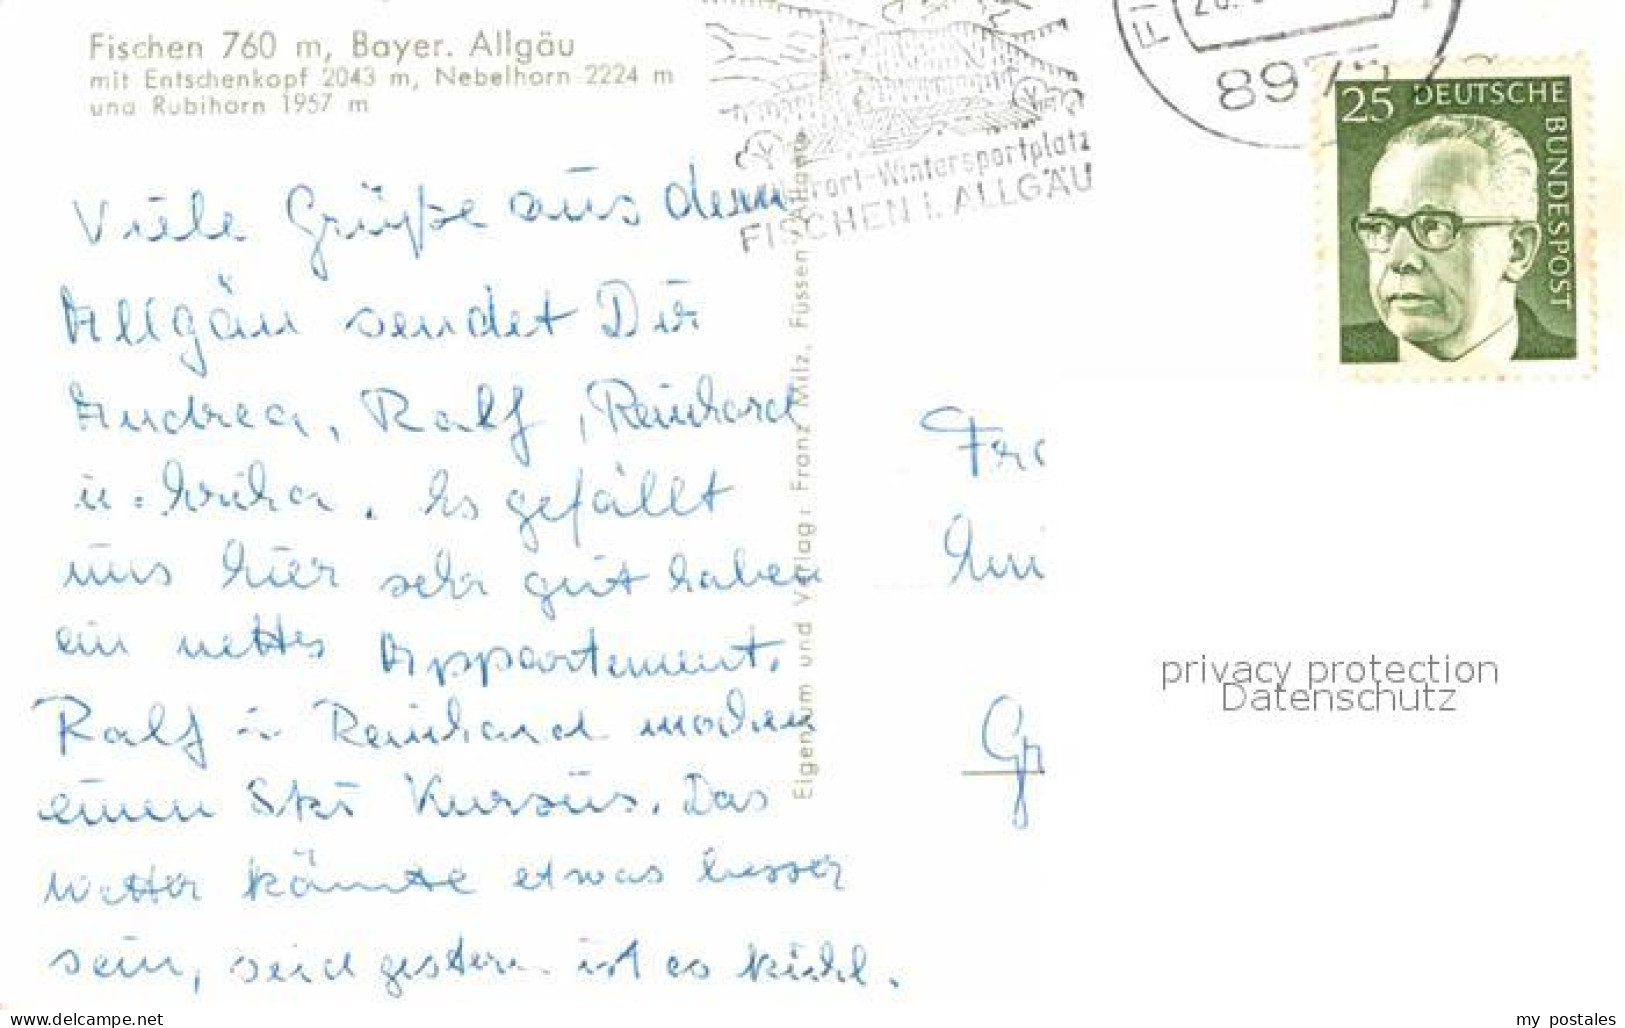 Fischen 760 m, Bayer. Allgäu
mit Entschenkopf 2043 m, Nebelhorn 2224 m
und Rubihorn 1957 m
Viele Grüße aus dem
Allgäu sendet Dir
Andrea, Ralf, Reinhard
u. Es gefällt
uns hier sehr gut haben
ein nettes Appartement.
Ralf u Reinhard machen
einen Ski Kursus. Das
Wetter könnte etwas besser
sein, seid gestern ist es kühl.
Eigentum und Verlag: Franz Milz, Füssen
Wintersportplatz
FISCHEN I. ALLGÄU
897
25 DEUTSCHE
BUNDESPOST
privacy protection
Datenschutz
www.delcampe.net
my_postales